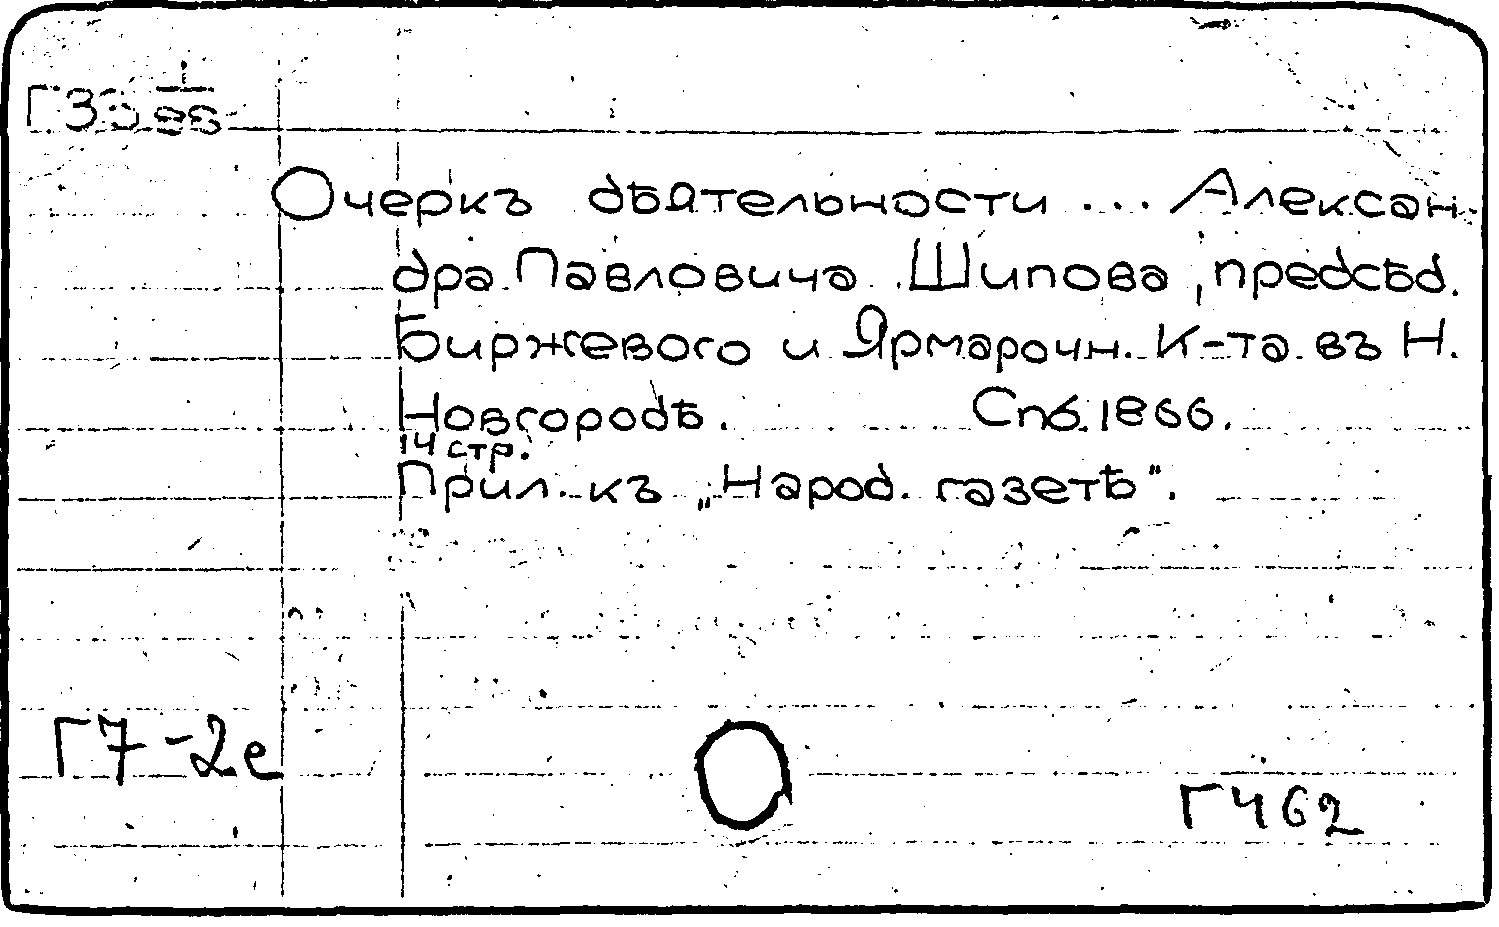 Очеркъ дѣятельности ... Алексан-
дра Павловича Шипова, предсѣд.
Биржевого и Ярмарочн. К-та въ Н.
Новгородѣ. Спб. 1866.
14 стр.
Прил. къ „Народ. газетѣ".
Г7-2е
Г462